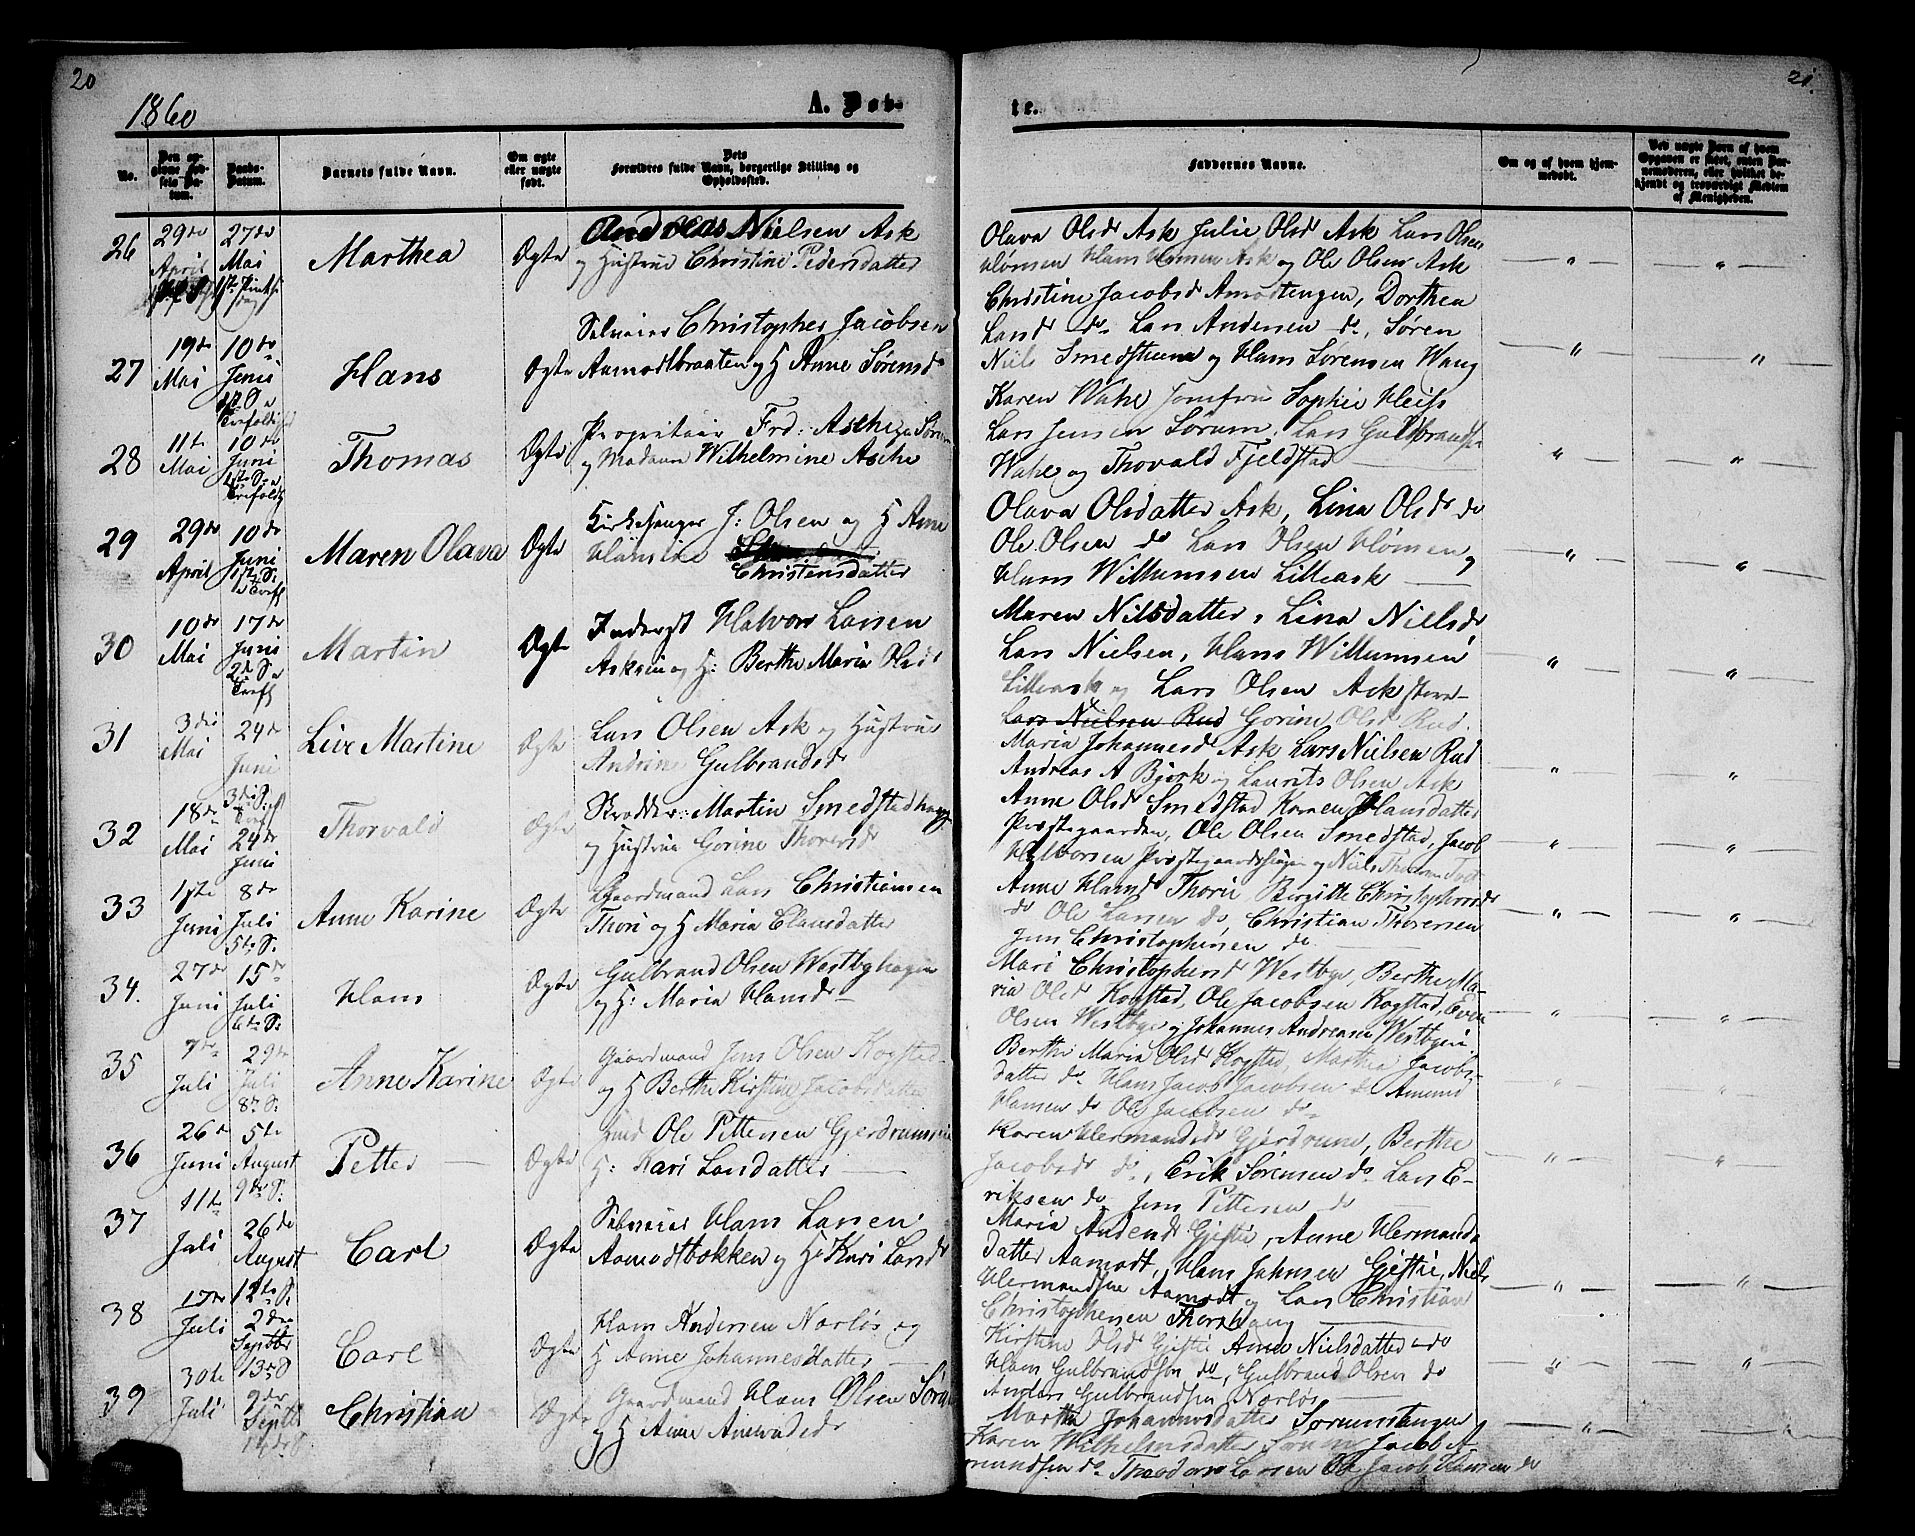 20
1860
A. Døb-
No.
Den opgivne Fødsels-Datum.
Daabs-Datum.
Barnets fulde Navn.
Om ægte eller uægte født.
Dets Forældres fulde Navn, borgerlige Stilling og Opholdssted.
26
29de April
27de Mai 1ste Pintsedag
Marthea
Ægte
Andreas Nielsen Ask
og Hustrue Christine Pedersdatter
27
19de Mai
10de Juni 1st S. a Trefoldighed
Hans
Ægte
Selveier Christopher Jacobsen
Aamodtbraaten og H Anne Sørensdr
28
11te Mai
10de Juni 1ste S. a Trefoldigh
Thomas
Ægte
Proprietair Frd: Asche Sørum
og Madame Wilhelmine Asche
29
29de April
10de Juni 1st S. a Trefh
Maren Olava
Ægte
Kirkesanger J: Olsen og H Anne
Christensdatter
30
10de Mai
17de Juni 2d S. a Trefh
Martin
Ægte
Inderst Halvor Larsen
og H: Berthe Maria Olsdr
31
3die Mai
24de Juni 3die S.
Live Martine
Ægte
Lars Olsen Ask og Hustrue
Andrine Gulbrandsdr
32
18de Mai
24de Juni
Thorvald
Ægte
Skrædder: Martin Smedstadhagen
og Hustrue Gorine Thoresdr
33
17te Juni
8de Juli 5te S.
Anne Karine
Ægte
Gaardmand Lars Christiansen
Thori og H Maria Clausdatter
34.
27de Juni
15de Juli 6te S:
Hans
Ægte
Gulbrand Olsen Westbyhagen
og H: Maria Hansdr
35
7de Juli
29de Juli 8de S:
Anne Karine
Ægte
Gaardmand Jens Olsen Kogstad
og H Berthe Kirstine Jacobsdatter
36
26de Juni
5te August 9de S:
Petter
Ægte
Ole Pettersen Gjerdrumseie
H: Kari Larsdatter
37
11te Juli
26de August 12te S.
Carl
Ægte
Selveier Hans Larsen
Aamodtbakken og H: Kari Larsdr
38
17de Juli
2den Septbr 13de S
Carl
Ægte
Hans Andersen Norløs og
H Anne Johannesdatter
39
30te Juli
9de Septbr 14de S.
Christian
Ægte
Gaardmand Hans Olsen Sørum
og H Anne Amundsdr
21.
te.
Faddernes Navne.
Om og af hvem hjemmedøbt.
Ved uægte Børn af hvem Opgaven er skeet, enten Barnemoderen, eller hvilket bekjendt og troværdigt Medlem af Menigheden.
Olava Olsdr Ask Julie Olsdr Ask Lars Olsen
Hønsen Hans Hansen Ask og Ole Olsen Ask
Christine Jacobsdr Amodtengen, Dorthea
Larsdr do Lars Andersen do, Søren
Niels Smedstuen og Hans Sørensen Wang
Karen Wahl Jomfru Sophie Heiss
Lars Jensen Sørum, Lars Gulbrandsen
Wahl og Thorvald Fjeldstad
Olava Olsdatter Ask, Lina Olsdr do
Ole Olsen do Lars Olsen Hønsen og
Hans Willumsen Lilleask
Maren Nilsdatter, Lina Nielsdr
Lars Nielsen, Hans Willumsen
Lilleask og Lars Olsen Ask
Lars Nielsen Rud Gorine Olsdr Rud
Maria Johannesdr Ask Lars Nielsen Rud
Andreas A Bjerk og Laurits Olsen Ask
Anne Olsdr Smedstad Karen Hansdatter
Præstegaarden, Ole Olsen Smedstad, Jacob
Halvorsen Præstegaardshagen og Niels
Anne Hansdr Thori Birgitte Christophersdr
do Ole Larsen do Christian Thoresen
Jens Christophersen do
Mari Christophersdr Westbye, Berthe Ma-
ria Olsdr Kogstad, Ole Jacobsen Kogstad, Even
Olsen Westbye og Johannes Andreasen Westbyeie
Berthe Maria Olsdr Kogstad, Marthea Jacobs-
datter do Hans Jacob Jacobsen do Amund
Hansen do Ole Jacobsen do
Karen Hermandsdr Gjerdrum, Berthe
Jacobsdr do, Erik Sørensen do Lars E-
riksen do Jens Pettersen do
Maria Andersdr Gjestie, Anne Hermands
datter Aamodt, Hans Jahnsen Gjestie, Niels
Hermandsen Aamodt og Lars Christian
Christophersen Thorshaug
Kirstine Olsdr Gjestie Anne Nielsdatter do
Hans Gulbrandsen do, Gulbrand Olsen do
Anders Gulbrandsen Norløs
Marthe Johannesdatter Sørumsengen
Karen Wilhelmsdatter Sørum Jacob A-
mundsen do Theodor Larsen Ole Jacob Hansen do